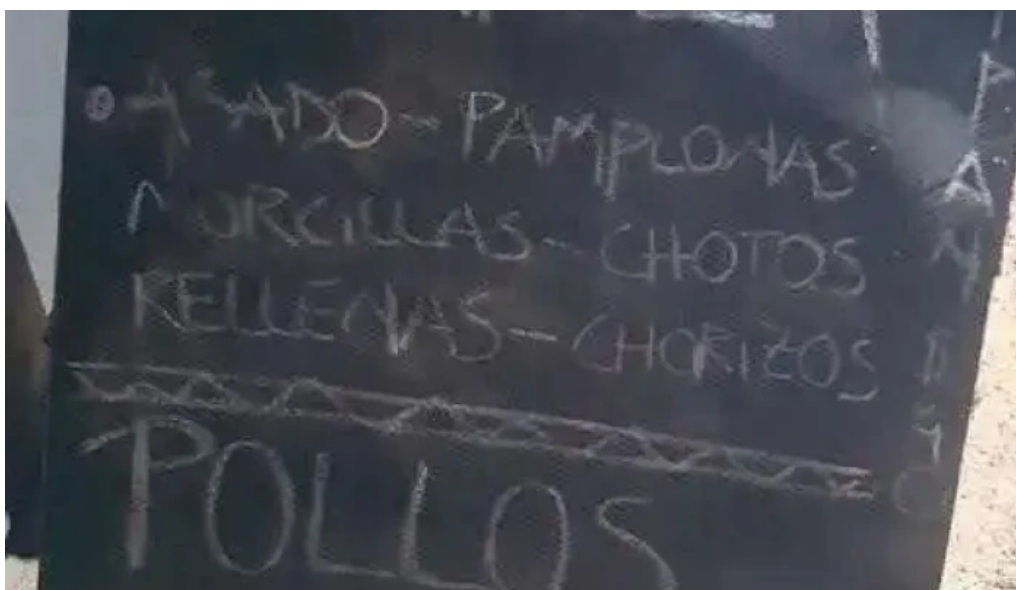 ASADO - PAMPLONAS
MORCILLAS - CHOTOS
RELLENAS - CHORIZOS
POLLOS